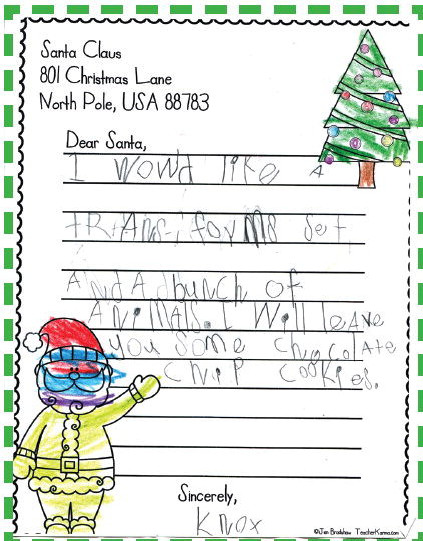 Santa Claus
801 Christmas Lane
North Pole, USA 88783
Dear Santa,
I would like A
set
And A bunch of
ANiMALS. I will leAve
you some chocolAte
chip cookies.
Sincerely,
Knox
©Jen Bradshaw TeacherKarma.com